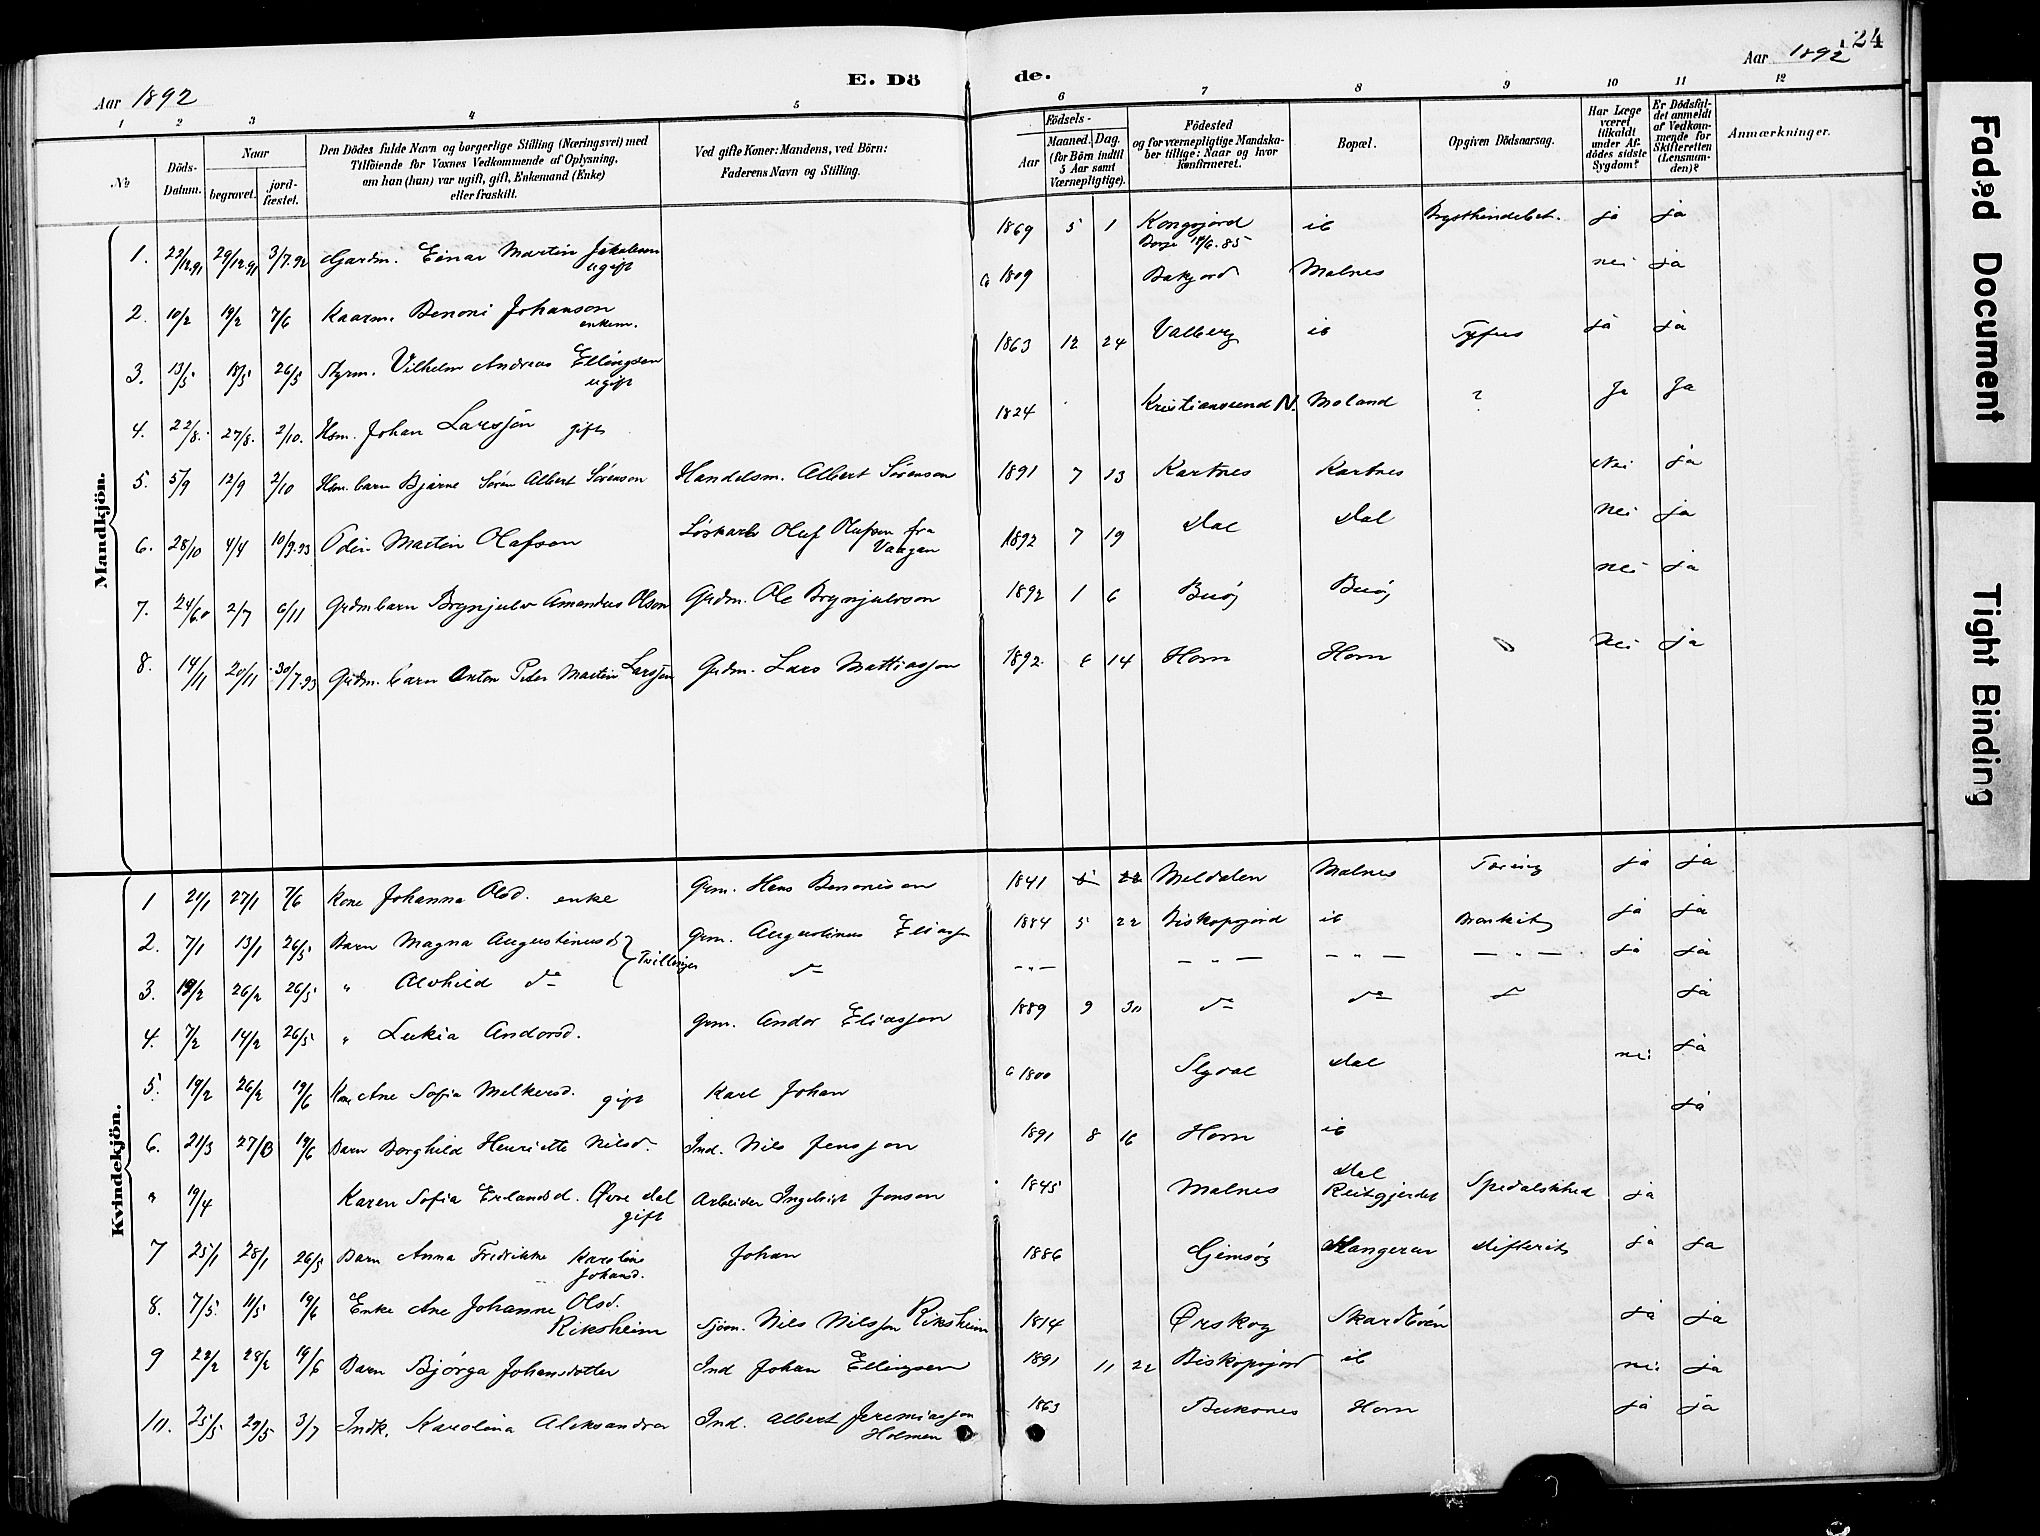 124
E. Dö de.
Aar 1892 Aar 1892
1 2 3 4 5 6 7 8 9 10 11 12
No
Döds-Datum.
Naar
begravet.
jord-fæstet.
Den Dödes fulde Navn og borgerlige Stilling (Næringsvei) med
Tilföiende for Voxnes Vedkommende af Oplysning,
om han (hun) var ugift, gift, Enkemand (Enke)
eller fraskilt.
Ved gifte Koner: Mandens, ved Börn:
Faderens Navn og Stilling.
Födsels-
Aar
Maaned. Dag.
(for Börn indtil
5 Aar samt
Værnepligtige).
Födested
og for værnepligtige Mandska-
ber tillige: Naar og hvor
konfirmeret.
Bopæl.
Opgiven Dödsaarsag.
Har Læge
været
tilkaldt
under Af-
dödes sidste
Sygdom?
Er Dödsfal-
det anmeldt
af Vedkom-
mende for
Skifteretten
(Lensman-
den)?
Anmærkninger.
Mandkjön.
1. 22/12.91 29/12.91 3/7.92 Gardm. Einar Martin Jakobson ugift 1869 5 1 Kongsjord ib Brysthindebet. ja ja
Borge 14/6.85
2. 10/2 19/2 7/6 Kaarm. Benoni Johanson enkem. c 1809 Bakjord Malnes nei ja
3. 13/5 18/5 26/5 Styrm. Vilhelm Andreas Ellingsen ugift 1863 12 24 Valberg ib Tyfus ja ja
4. 22/8. 27/8. 2/10. Hsm. Johan Larssøn gift 1824 Kristiansund N. Moland ? Ja Ja
5. 5/9 12/9 2/10 Hsm. barn Bjarne Søren Albert Sørenson Handelsm. Albert Sørenson 1891 7 13 Kartnes Kartnes Nei ja
6. 28/10 4/4 10/9.93 Odin Martin Olafson Løskarl Oluf Olafson fra Vaagan 1892 7 19 Dal Dal nei ja
7. 24/6.0 2/7 6/11 Grdm barn Brynjulv Amandus Olson Grdm. Ole Brynjulvson 1892 1 6 Buøj Buøj nei ja
8. 14/11 20/11 30/7.93 Grdm. barn Anton Peder Martin Larssøn Grdm. Lars Mattiassøn 1892. 6 14 Horn Horn nei ja
Kvindekjön.
1 21/1 27/1 7/6 Kone Johanna Olsd. enke Grm. Hans Benonison 1841 5 22 Meldalen Malnes Tæring ja ja
2. 7/1 13/1 26/5 Barn Magna Augustinusd. Tvillinger Grm. Augustinus Eliassøn 1884 5 22 Biskopsjord ib Bronkit ja ja
3. 19/2 26/2 26/5 " Alvhild do do - " - - " - - " - - " - ja ja
4. 7/2 14/2 26/5 " Lukia Andorsd. Grm. Andor Eliassøn 1889 9 30 do do do ja
5. 19/2 26/2 19/6 Kone Ane Sofia Melkersd. gift Karl Johan c 1800 Slydal Dal nei ja
6. 21/3 27/3 19/6 Barn Borghild Henriette Nilsd. Ind. Nils Jenssøn 1891 8 16 Horn ib ja
" 19/4 Karen Sofia Erlandsd. Øvre Dal gift Arbeider Ingebrigt Jonson 1845 Malnes Dal Reitgjerdet Spedalskhed ja
7 25/1 28/1 26/5 Barn Anna Fredrikke Karoline Johansd. Johan 1886 Gimsøy Hangeran Difterit ja ja
8. 7/5. 11/5 19/6 Enke Ane Johanne Olsd. Riksheim Sjøm. Nils Nilssøn Riksheim 1814 Ørskog Skardsøen ja ja
9 22/2 28/2 19/6 Barn Bjørga Johansdotter Ind Johan Ellingsen 1891 11 22 Biskopsjord ib nei ja
10. 25/5 29/5 3/7 Indk. Karolina Aleksandra Ind. Albert Jeremiassøn Holmen 1863 Buksnes Horn ja ja
Faded Document
Tight Binding